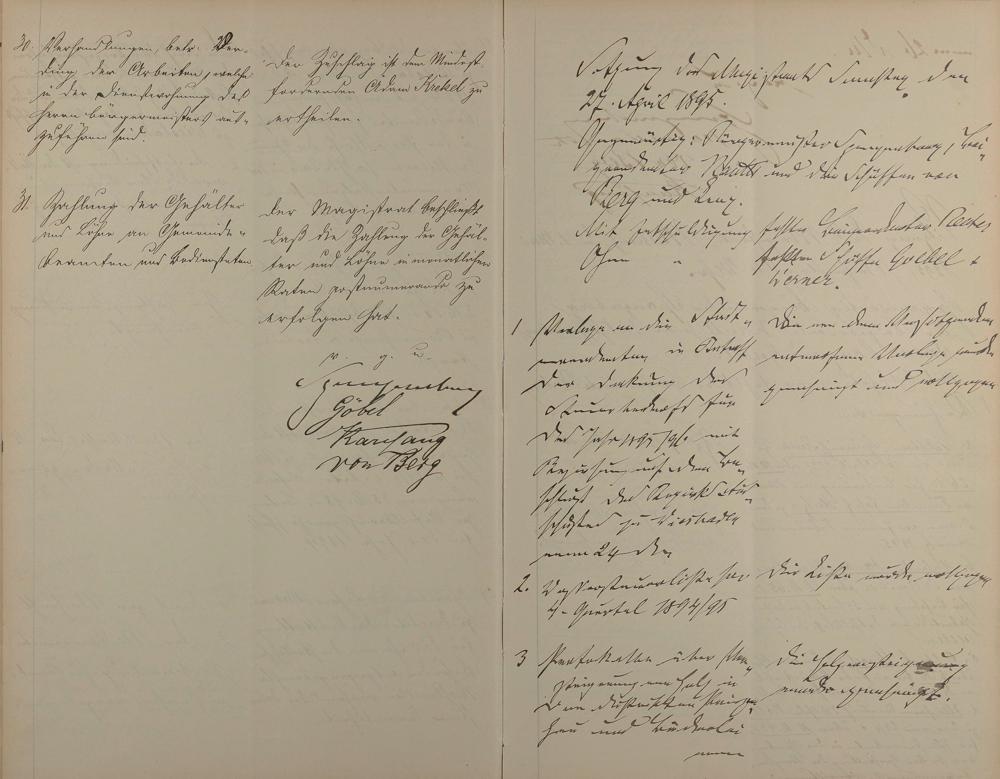 30. Verhandlungen, betr. Ver-
dung der Arbeiten, welche
in der Dienstwohnung des
Herrn Bürgermeisters aus-
zuführen sind.
Der Zuschlag ist dem Mindest-
fordernden Adam Krekel zu
ertheilen.
31. Zahlung der Gehälter
und Löhne an Gemeinde-
beamten und Bediensteten
Der Magistrat beschließt
daß die Zahlung der Gehäl-
ter und Löhne in monatlichen
Raten postnumerando zu
erfolgen hat.
v. g. u.
Göbel
von Berg
Sitzung des Magistrats Samstag den
27. April 1895.
Gegenwärtig: Bürgermeister
und die Schöffen von
Berg und
Mit Entschuldigung fehlte
Ohne " fehlten Schöffen Goebel +
Werner.
1 Vorlage an die Stadt-
verordneten in Betreff
der Deckung des
Steuerbedarfs für
das Jahr 1895/96 mit
Beziehung auf den Be-
schluß des Bezirksaus-
schusses zu Wiesbaden
vom 24
Die von dem Vorsitzenden
entworfene Vorlage wurde
genehmigt und vollzogen
2. für
4. Quartal 1894/95
Die Liste wurde vollzogen
3 Protokolle über Ver-
steigerung von Holz in
den Distrikten
und
vom
Die Holzversteigerung
wurde genehmigt.